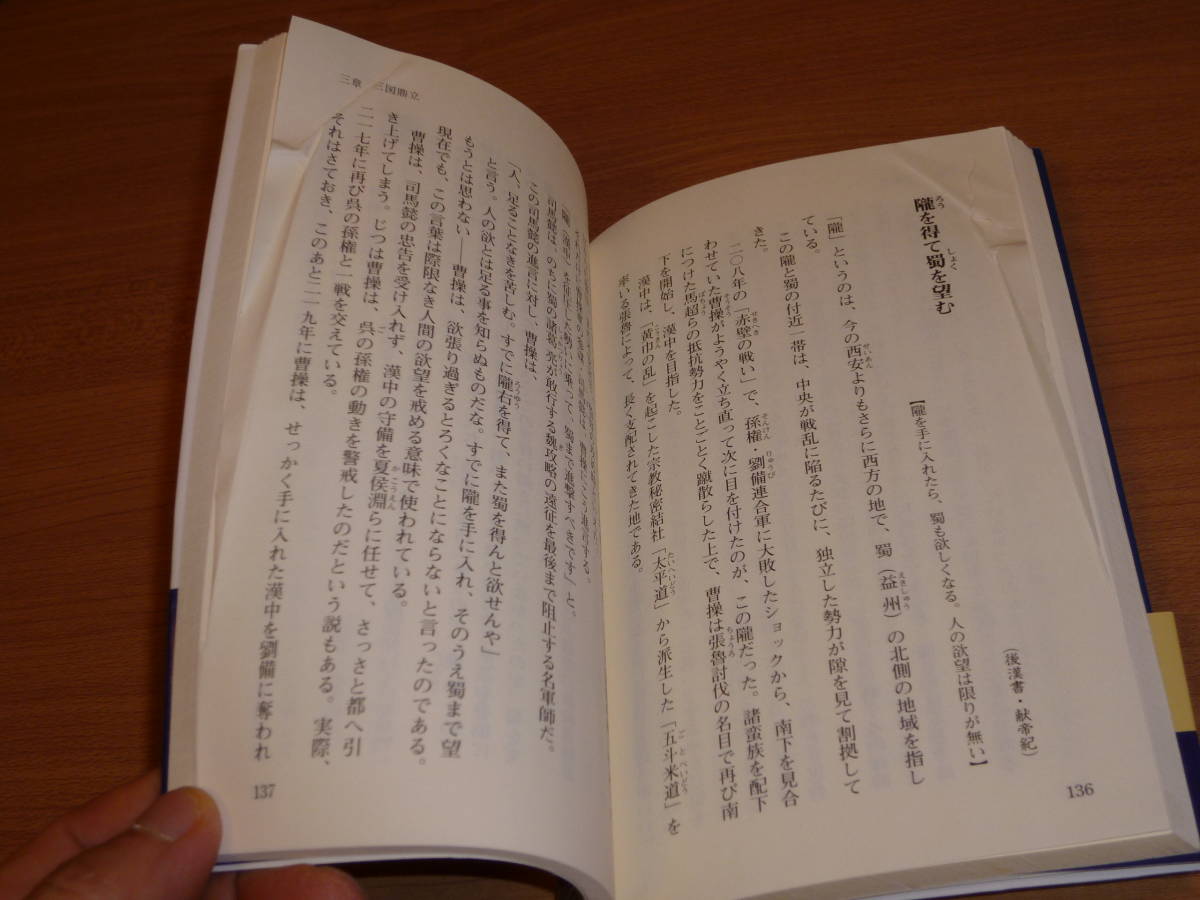 隴を得て蜀を望む
【隴を手に入れたら、蜀も欲しくなる。人の欲望は限りが無い】
（後漢書・献帝紀）
「隴」というのは、今の西安よりもさらに西方の地で、蜀（益州）の北側の地域を指し
ている。
この隴と蜀の付近一帯は、中央が戦乱に陥るたびに、独立した勢力が隙を見て割拠して
きた。
二〇八年の「赤壁の戦い」で、孫権・劉備連合軍に大敗したショックから、南下を見合
わせていた曹操がようやく立ち直って次に目を付けたのが、この隴だった。諸蛮族を配下
につけた馬超らの抵抗勢力をことごとく蹴散らした上で、曹操は張魯討伐の名目で再び南
下を開始し、漢中を目指した。
漢中は、「黄巾の乱」を起こした宗教秘密結社「太平道」から派生した「五斗米道」を
率いる張魯によって、長く支配されてきた地である。
136
三章　三国鼎立
司馬懿は、曹操にこう進言する。
「隴（漢中）を平定した勢いに乗って、蜀まで進撃すべきです」と。
司馬懿は、のちに蜀の諸葛亮が敢行する魏攻略の遠征を最後まで阻止する名軍師だ。
この司馬懿の進言に対し、曹操は、
「人、足ることなきを苦しむ。すでに隴右を得て、また蜀を得んと欲せんや」
と言う。人の欲とは足る事を知らぬものだな。すでに隴を手に入れ、そのうえ蜀まで望
もうとは思わない――曹操は、欲張り過ぎるとろくなことにならないと言ったのである。
現在でも、この言葉は際限なき人間の欲望を戒める意味で使われている。
曹操は、司馬懿の忠告を受け入れず、漢中の守備を夏侯淵らに任せて、さっさと都へ引
き上げてしまう。じつは曹操は、呉の孫権の動きを警戒したのだという説もある。実際、
二一七年に再び呉の孫権と一戦を交えている。
それはさておき、このあと二一九年に曹操は、せっかく手に入れた漢中を劉備に奪われ
137